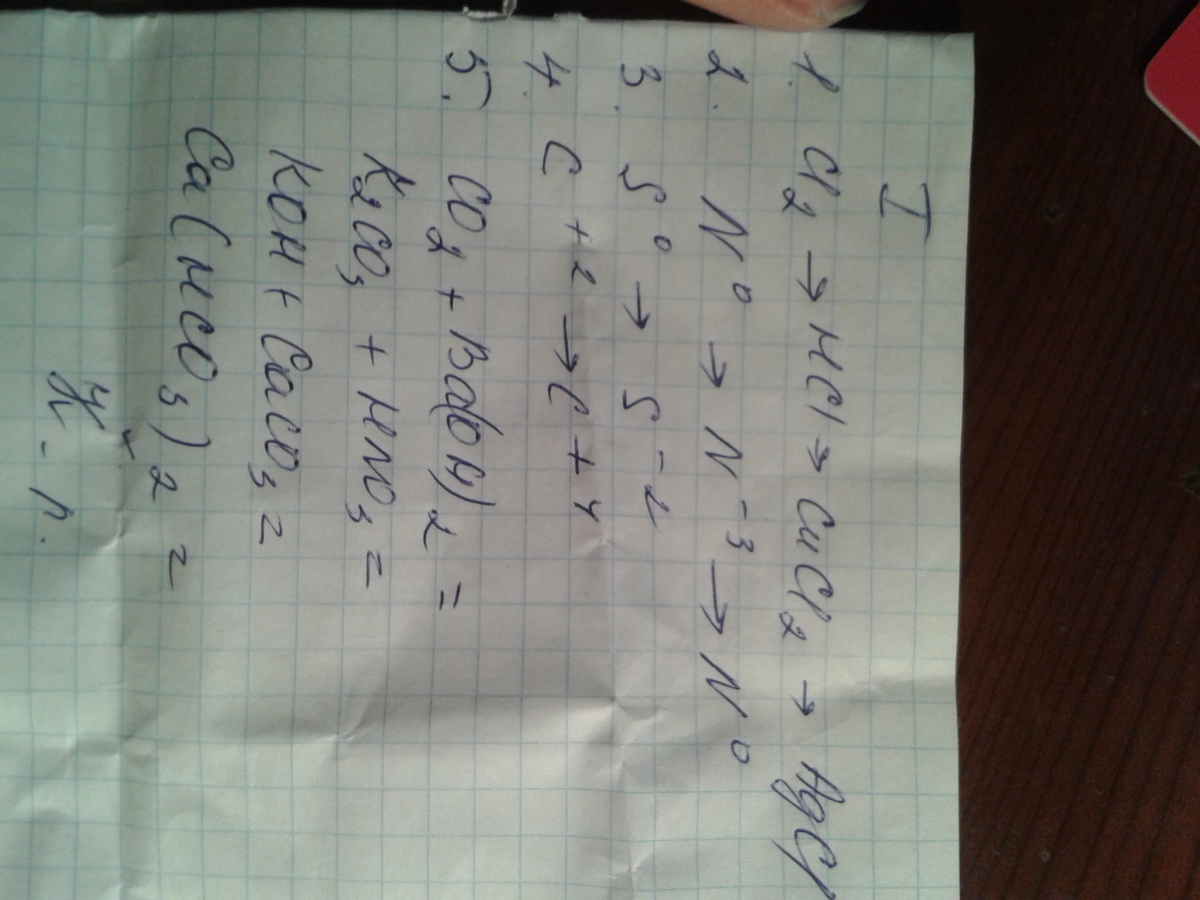 I
1. Cl2 → HCl → CuCl2 → AgCl
2. N⁰ → N⁻³ → N⁰
3. S⁰ → S⁻²
4. C +2 → C +4
5. CO2 + Ba(OH)2 =
K2CO3 + HNO3 =
KOH + CaCO3 =
Ca(HCO3)2 =